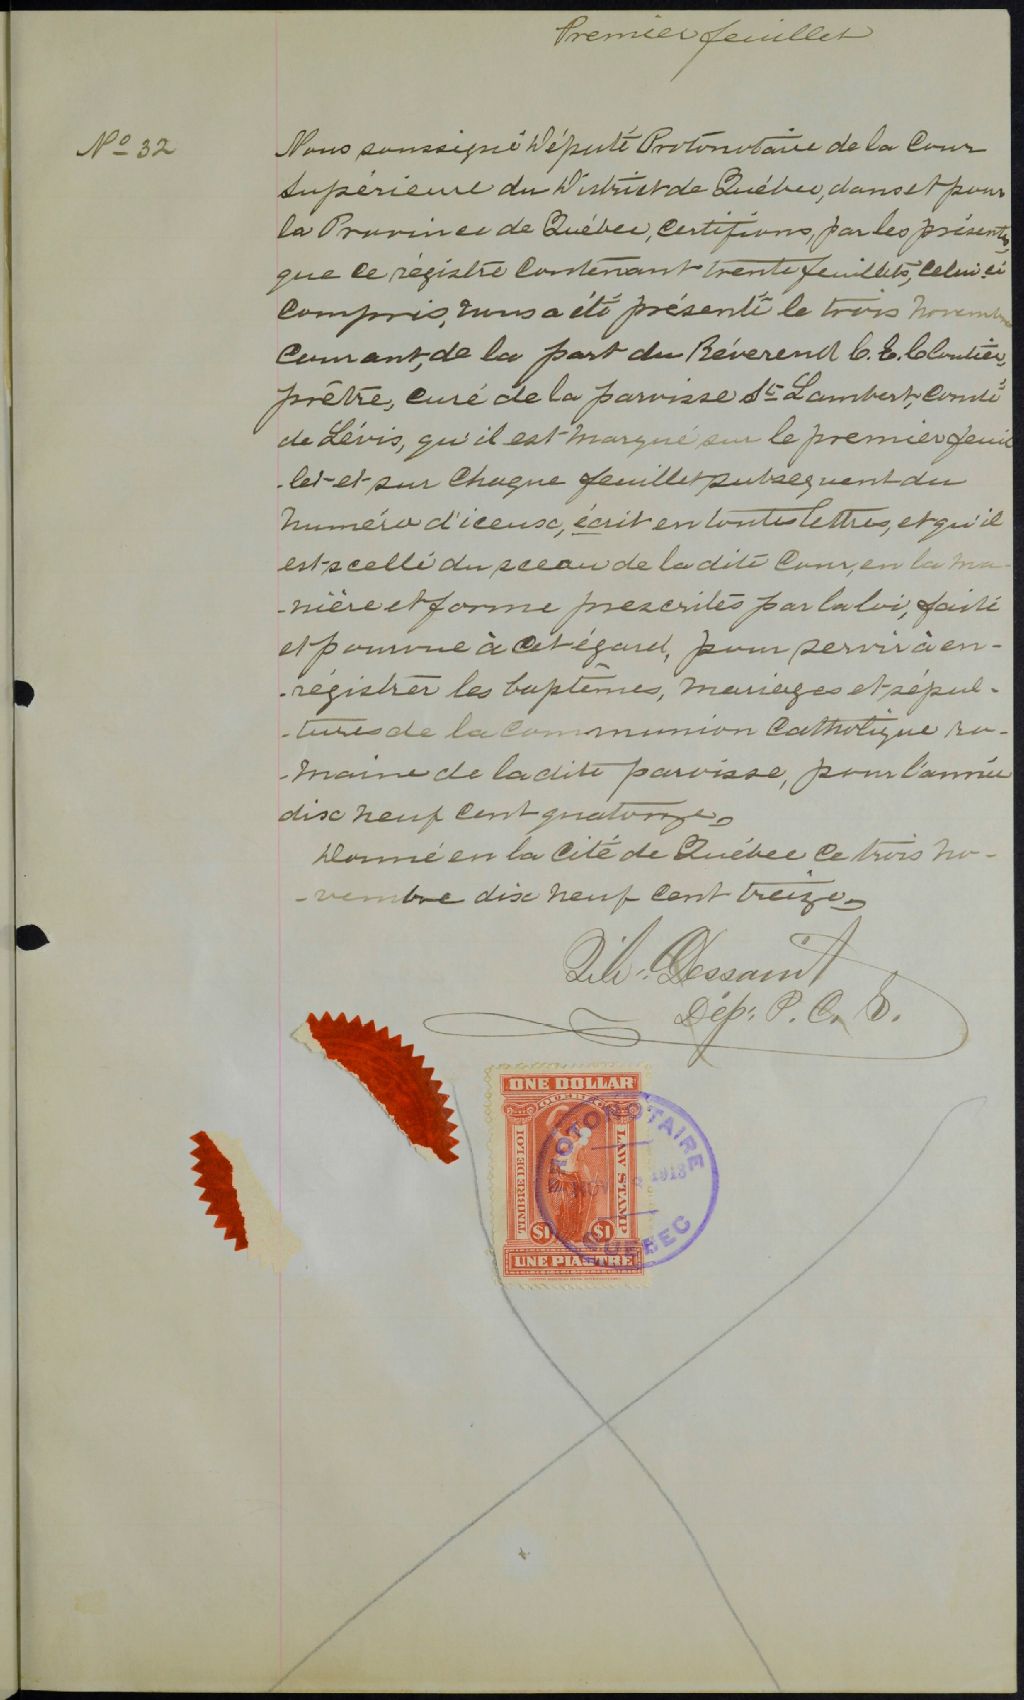 Premier feuillet
No 32
Nous soussigné Député Protonotaire de la Cour
Supérieure du District de Québec, dans et pour
la Province de Québec, certifions, par les présentes,
que ce régistre contenant trente feuillets, celui-ci
compris, nous a été présenté le trois novembre
courant, de la part du Réverend C. E. Cloutier,
prêtre, curé de la paroisse St Lambert, comté
de Lévis, qu'il est marqué sur le premier feuil
-let et sur chaque feuillet subsequent du
numéro d'iceux, écrit en toutes lettres, et qu'il
est scellé du sceau de la dite Cour, en la ma-
-nière et forme prescrites par la loi, faite
et pourvue à cet égard, pour servir à en-
-régistrer les baptêmes, mariages et sépul-
-tures de la Communion Catholique ro-
-maine de la dite paroisse, pour l'année
dix neuf cent quatorze.
Donné en la Cité de Québec ce trois no-
-vembre dix neuf cent treize.
Dessaint
Dép. P. C. S.
ONE DOLLAR
QUEBEC
TIMBRE DE LOI
LAW STAMP
$1 $1
UNE PIASTRE
PROTONOTAIRE
NOV 1913
QUEBEC